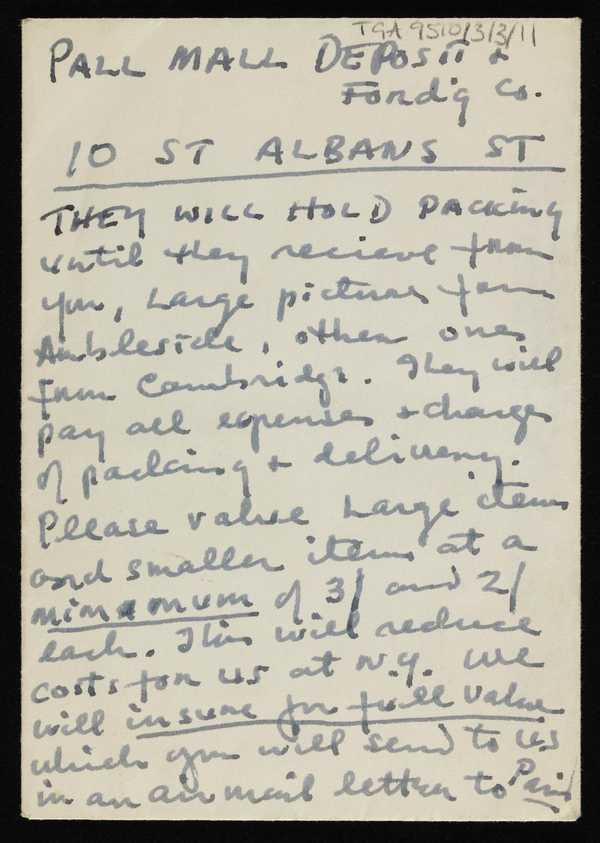 TGA 9510/3/3/11
PALL MALL DEPOSIT &
Fordig Co.
10 ST ALBANS ST
THEY WILL HOLD PACKING
until they recieve from
you, Large pictures from
Ambleside, other ones
from Cambridge. They will
pay all expenses & charges
of packing & delivery.
Please value Large items
and smaller items at a
minimum of 3/ and 2/
each. This will reduce
costs for us at N.Y. We
will insure for full value
which you will send to us
in an air mail letter to Paris